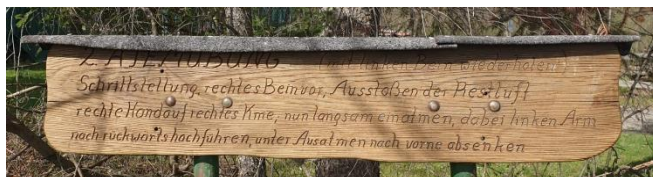 2. ATEMÜBUNG (mit linken Bein wiederholen)
Schrittstellung, rechtes Bein vor, Ausstoßen der Restluft
rechte Hand auf rechtes Knie, nun langsam einatmen, dabei linken Arm
nach rückwärts hochführen, unter Ausatmen nach vorne absenken